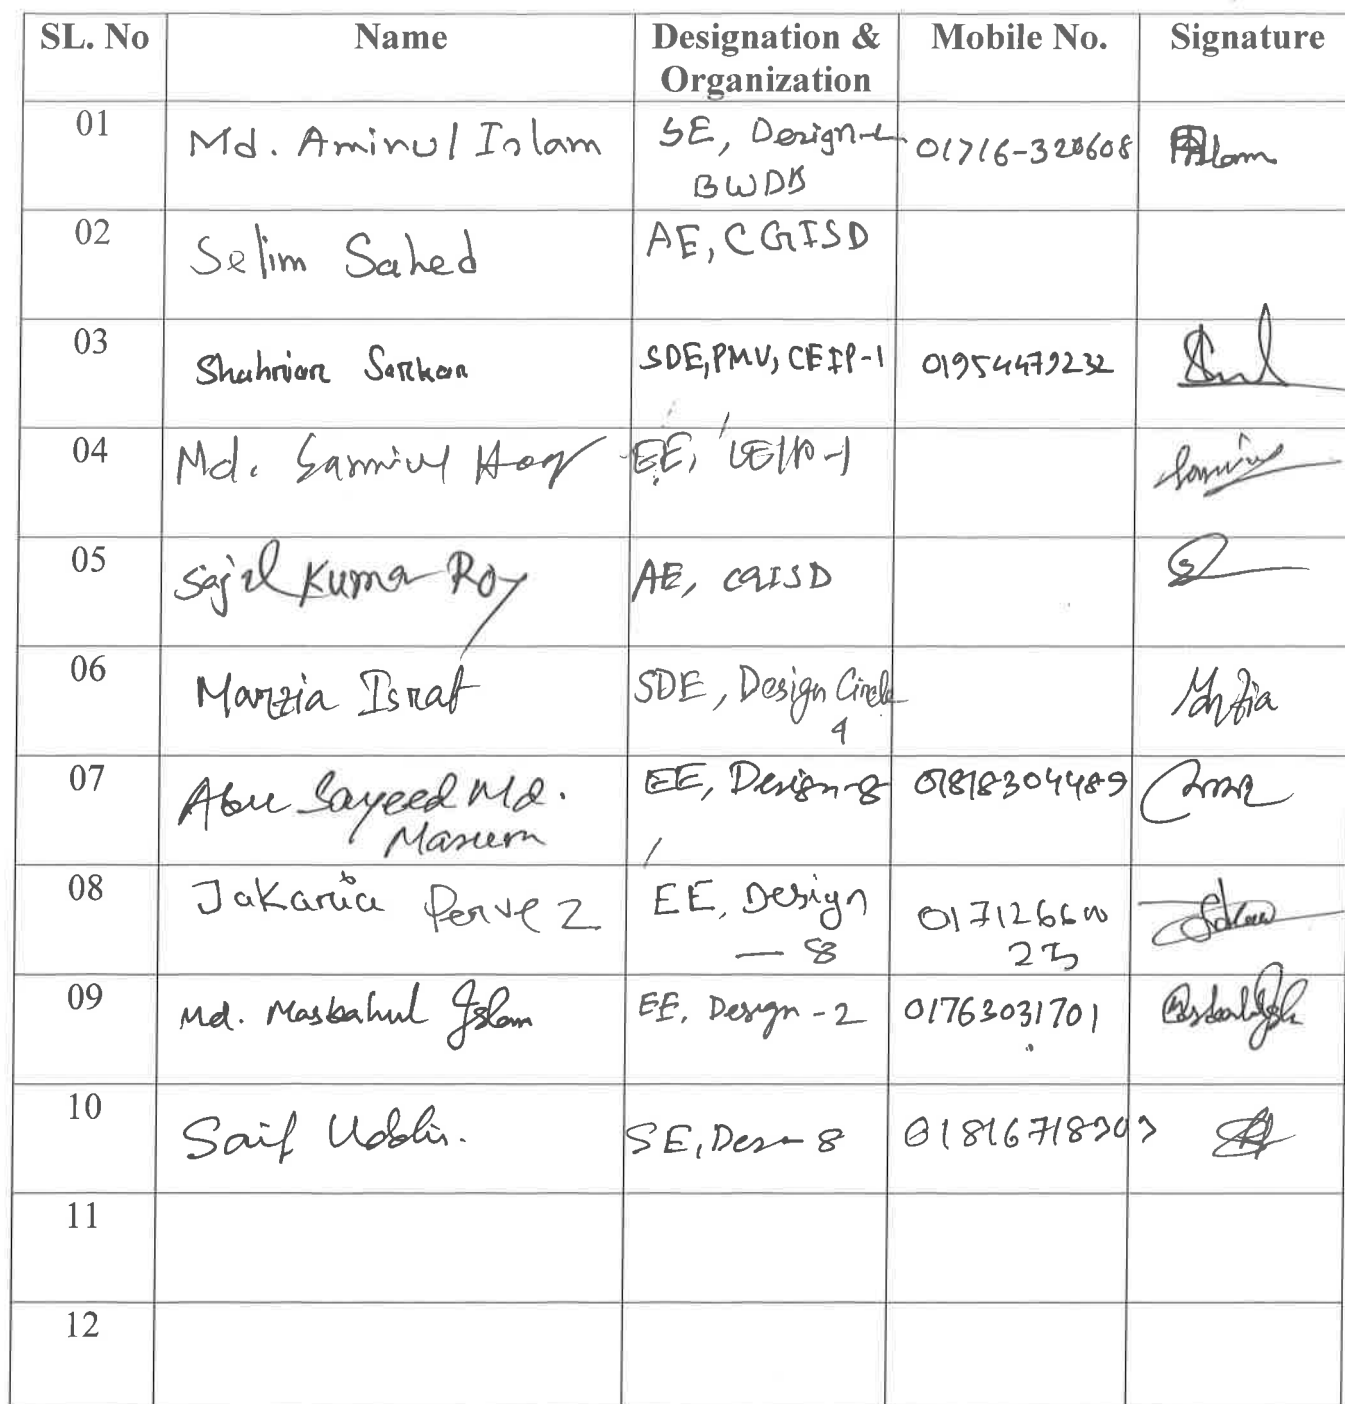 SL. No Name Designation & Organization Mobile No. Signature
01 Md. Aminul Islam SE, Design-
BWDB 01716-328608
02 Selim Sahed AE, CGISD
03 Shahriar Sarkar SDE, PMU, CEIP-1 01954479232
04 Md. Samiul Hoq EE, CEIP-1
05 Sajal Kumar Roy AE, CGISD
06 Marzia Israt SDE, Design Circle
4 Marzia
07 Abu Sayeed Md.
Masum EE, Design-8 01818304489
08 Jakaria Pervez EE, Design
— 8
23
09 Md. Masbahul Islam EE, Design-2 01763031701
10 Saif Uddin. SE, Desn-8
11
12